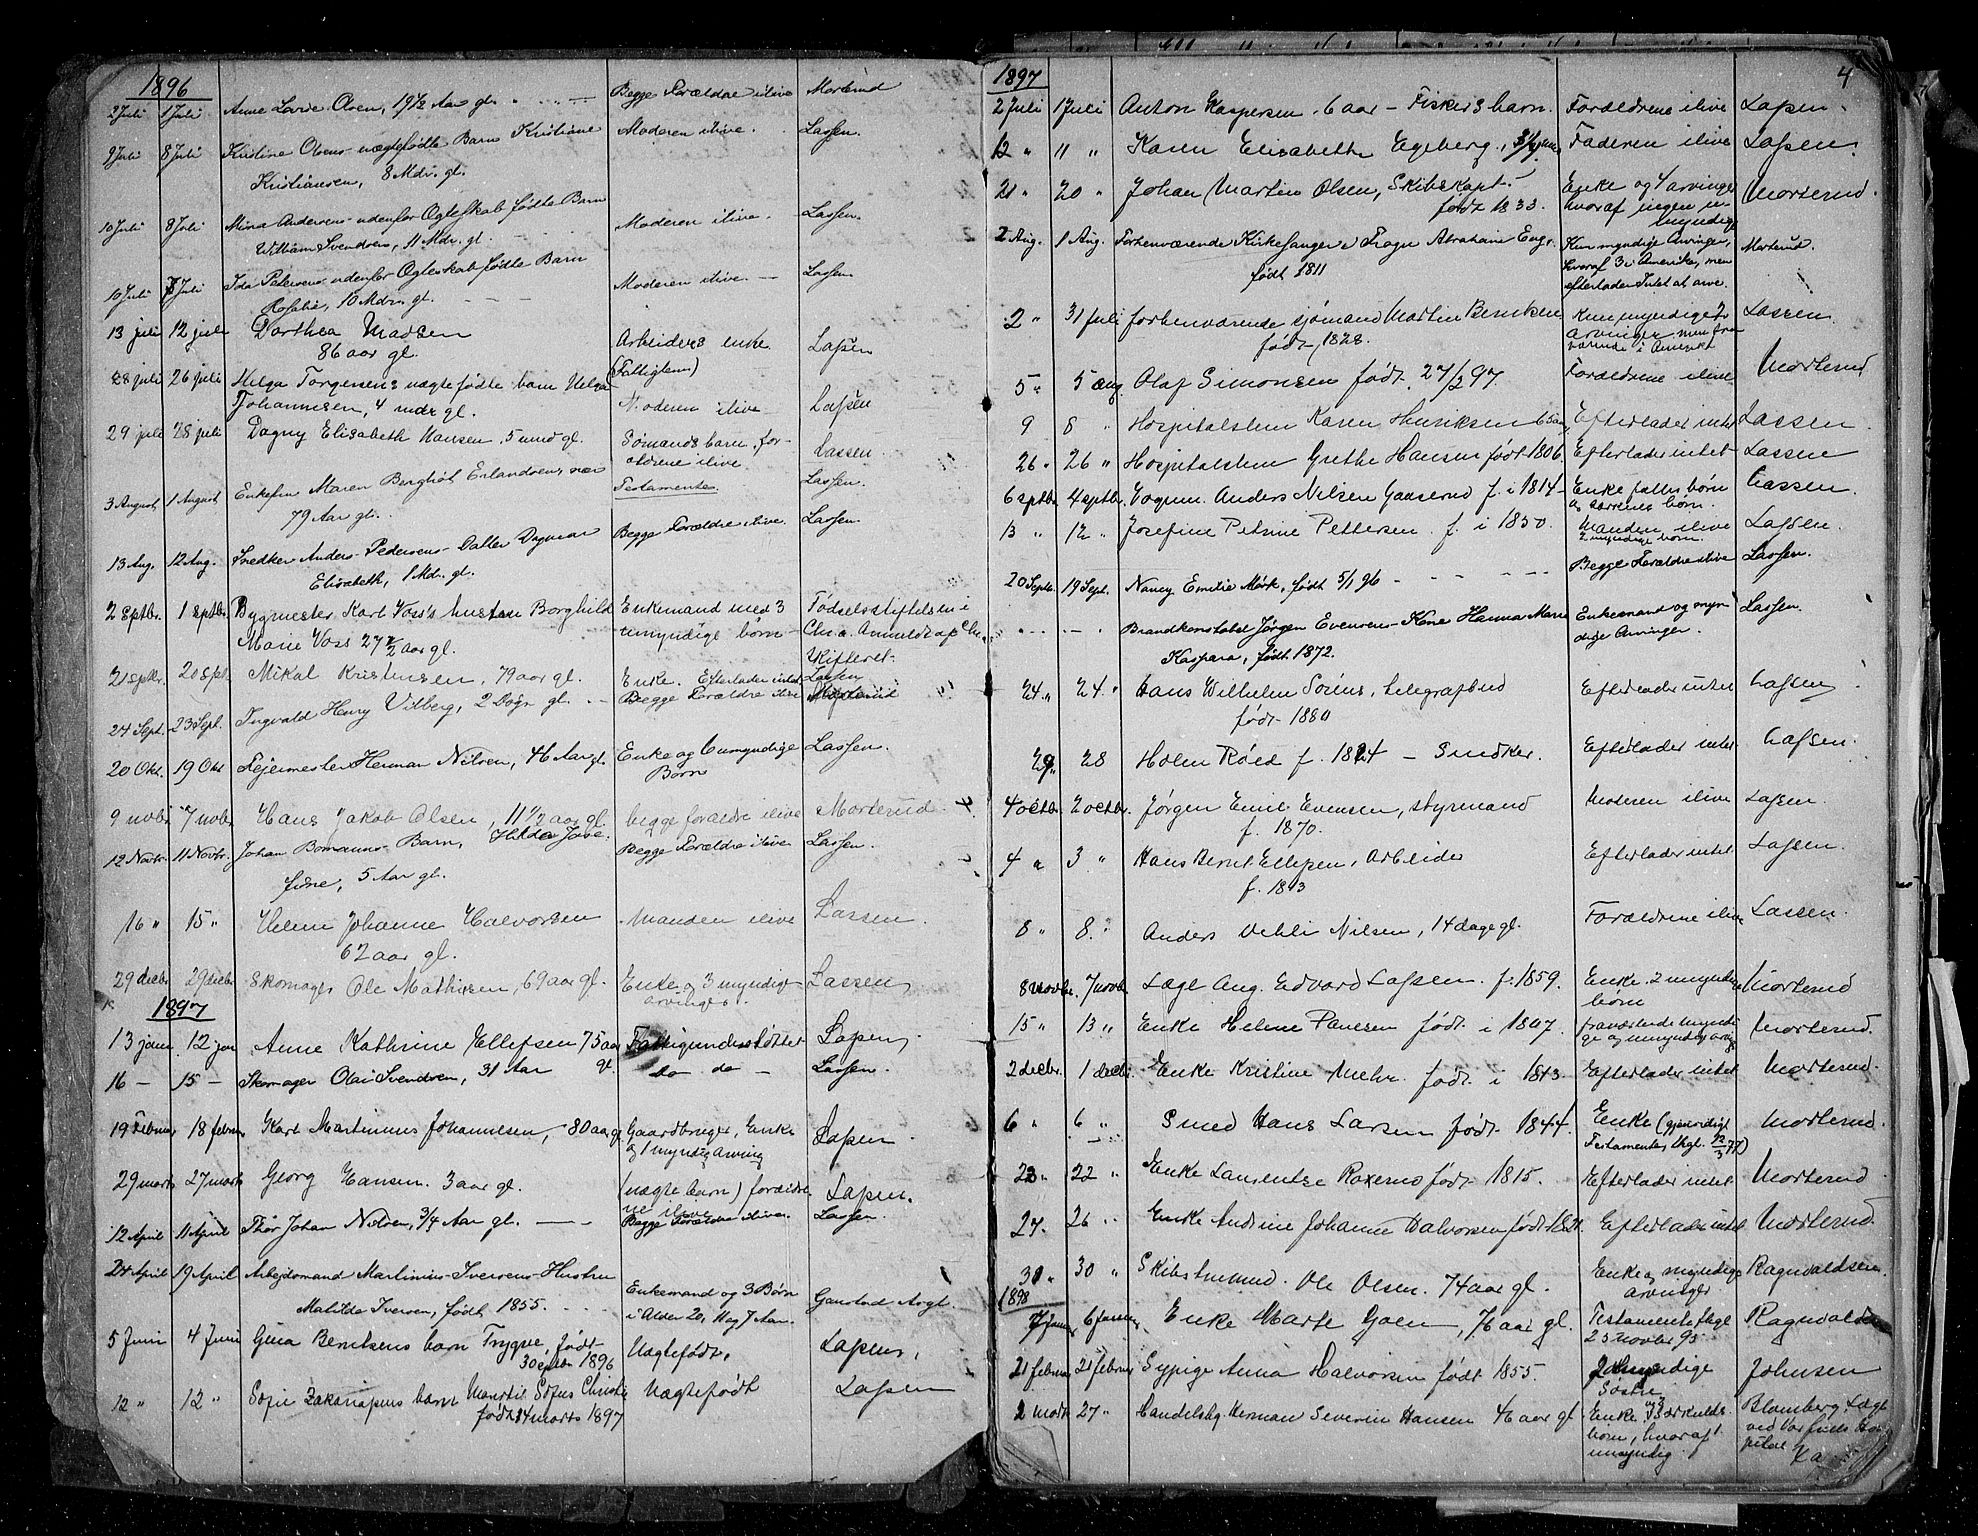 1896
2 Juli 1 Juli Anne Lovise Olsen, 19 1/2 Aar gl. Begge Forældre ilive Morterud
9 Juli 8 Juli Kristine Olsens uægtefødte Barn Kristiane Moderen ilive. Lassen.
Kristiansen, 8 Mdr. gl.
10 Juli 8 Juli Mina Andersens udenfor Ægteskab fødte Barn Moderen ilive. Lassen.
William Svendsen, 11 Mdr. gl.
10 Juli Juli Ida Petersens udenfor Ægteskab fødte Barn Moderen ilive Lassen
Rosalie, 10 Mdr. gl.
13 juli 12 juli Dorthea Madsen Arbeiders enke Lassen
86 aar gl. (Fattiglem)
28 juli 26 juli Helga Torgersens uægtefødte barn Helga
Johannesen, 4 mdr gl. Moderen ilive Lassen
29 juli 28 juli Dagny Elisabeth Hansen, 5 mnd gl. Sømands barn, for- Lassen
ældrene ilive.
3 August 1 August Enkefru Maren Berghöt Erlandsens Testamente Lassen.
79 Aar gl.
13 Aug. 12 Aug. Snedker Anders Pedersens Datter Dagmar Begge Forældre ilive. Lassen.
Elisabeth, 1 Md. gl.
2 Sptbr. 1 sptbr. Bygmester Karl Voss's hustru Borghild Enkemand med 3 Fødselsstiftelsen i
Marie Voss 27 1/2 aar gl. umyndige børn Chr.a. Anmeldt af
Skifteret.
21 sptbr. 20 spt. Mikal Kristensen, 79 aar gl. Enke. Efterlader intet Lassen
24 Sept. 23 Sept. Ingvald Henry Vitberg, 2 Døgn gl. Begge Forældre ilive Morterud
20 Okt. 19 Okt Feiermester Herman Nilsen, 46 Aar gl. Enke og 6 umyndige Lassen.
Børn
9 novbr. 7 novbr. Hans Jakob Olsen, 11 1/2 aar gl. begge forældre ilive Morterud
12 Novbr. 11 Novbr. Johan Bomanns Barn, Hilda Jose- Begge Forældre ilive Lassen.
fine, 5 Aar gl.
16 " 15 " Helene Johanne Halvorsen Manden ilive Lassen.
62 aar gl.
29 decbr. 29 decbr Skomager Ole Mathisen, 69 aar gl. Enke og 3 myndige Lassen
arvinger.
1897
13 janr. 12 jan Anne Kathrine Ellefsen 75 aar gl. Fattigunderstøttet Lassen
16 — 15 — Skomager Olai Svendsen, 31 Aar do do — Lassen.
19 Februar 18 februar Karl Martinius Johannesen, 80 aar gl Gaardbruger, Enke Lassen
og 1 myndig Arving
29 marts 27 marts Georg Hansen. 3 aar gl. (uægte barn) forældre- Lassen.
ne ilive
12 April 11 April Thor Johan Nilsen, 3/4 Aar gl. Begge Forældre ilive. Lassen.
24 April 19 April Arbejdsmand Martinius Iversens Hustru
Matilde Iversen, født 1855. Enkemand og 3 Børn Gaustad Asyl.
i Alder 20, 11 og 7 Aar.
5 Juni 4 Juni Gina Berntsens barn Trygve, født Uægtefødt, Lassen,
30 septbr 1896
12 " 12 " Sofie Zakariassens barn Sofus Christi Uægtefødt Lassen
født 24 marts 1897

1897 4
2 Juli 1 Juli Anton Kaspersen, 6 aar – Fiskers barn. Forældrene ilive Lassen.
12 " 11 " Karen Elisabeth Egeberg, 3/4 aar Faderen ilive Lassen.
21 " 20 " Johan Martin Olsen, Skibskapt. Enke og 4 arvinger Morterud.
født 1833. hvoraf ingen u-
myndig
2 Aug. 1 Aug. Forhenværende Kirkesanger i Frogn Abraham Engr. Kun myndige Arvinger, Morterud.
født 1811 hvoraf 3 i Amerika, men
efterlader Intet at arve.
2 " 31 juli forhenværende sjømand Martin Berntsen Kun myndige Lassen
født 1828. arvinger men fra-
værende i Amerika
5 " 5 aug Olaf Simonsen født 27/2 97. Forældrene ilive Morterud
9 8 " Hospitalslem Karen Henriksen 65 aar Efterlader intet Lassen
26 " 26 " Hospitalslem Grethe Hansen født 1806. Efterlader intet Lassen
6 sptbr. 4 sptbr. Vognm. Anders Nilsen Gaaserud f. i 1814 Enke fælles børn Lassen.
og særkuls børn.
13 " 12 " Josefine Petrine Pettersen f. i 1850. Manden ilive Lassen.
2 myndige børn.
20 Septbr. 19 Sept. Nancy Emilie Mörk, født 5/1 96 Begge Forældre ilive Lassen.
" " Brandkonstabel Jørgen Evensens Kone Hanna Marie Enkemand og myn- Lassen.
Kaspara, født 1872. dige Arvinger.
24 " 24 " Hans Wilhelm Sörens, telegrafbud Efterlader intet Lassen
født 1880
29 " 28 Holm Röed f. 1824 – Snedker. Efterlader intet Lassen.
4 octbr. 2 octbr. Jørgen Emil Evensen, styrmand Moderen ilive Lassen.
f. 1870.
4 " 3 " Hans Bernt Ellefsen, Arbeider Efterlader intet Lassen.
f. 1843
8 " 8 " Anders Vehli Nilsen, 14 dage gl. Forældrene ilive Lassen.
8 novbr. 7 novbr. Læge Aug. Edvard Lassen. f. 1859. Enke. 2 umyndige Morterud
børn
15 " 13 " Enke Helene Paulsen født i 1807. fraværende myndi- Morterud.
ge og umyndige arvinger
2 decbr. 1 decbr. Enke Kristine Mehr. født i 1843. Efterlader intet Morterud.
6 " 6 " Smed Hans Larsen født 1844. Enke (gjensidigt Morterud.
Testamente, thgl. 12/3 77)
23 " 22 " Enke Laurentze Roxerud født 1815. Efterlader intet Morterud
27. 26 " Enke Andrine Johanne Halvorsen født 1821. Efterlader intet Morterud.
31 " 30 " Skibstømmermd. Ole Olsen. 74 aar gl. Enke og myndige Ragnvaldsen.
arvinger
1898
7 Januar 6 Januar Enke Marte Goen, 76 aar gl. Testamente thgl. Ragnvaldsen
25 novbr 95
21 februar 21 februar Sypige Anna Halvorsen født 1855. 2 myndige Johnsen
Søstre
2 marts 27 " Handelsbg. Herman Severin Hansen 46 aar gl. Enke og Særkulds- Blomberg Læge
børn, hvoraf 1 ved Vor frues Hos-
umyndig. pital